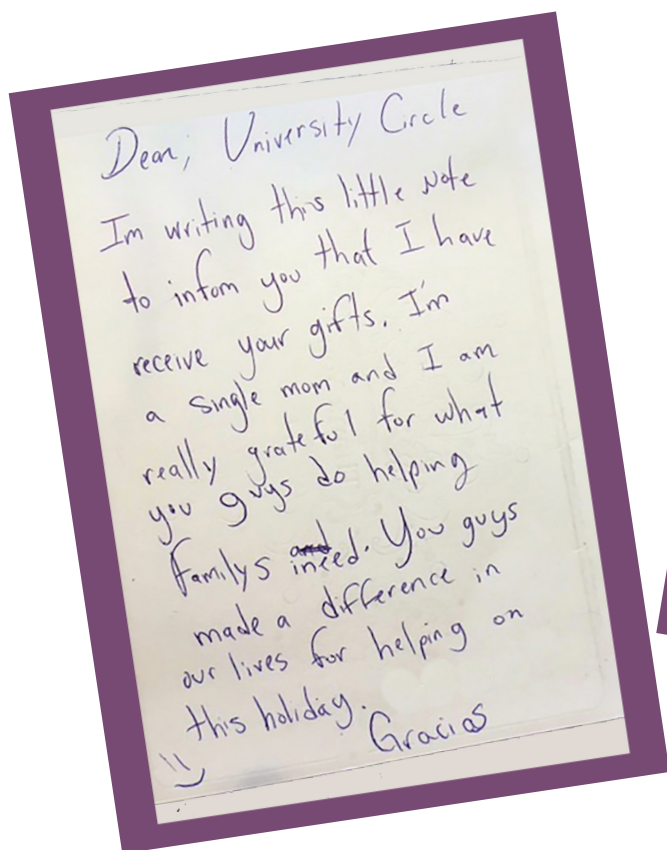 Dear, University Circle
Im writing this little Note
to infom you that I have
receive your gifts. I'm
a single mom and I am
really grateful for what
you guys do helping
familys inteed. You guys
made a difference in
our lives for helping on
this holiday.
Gracias